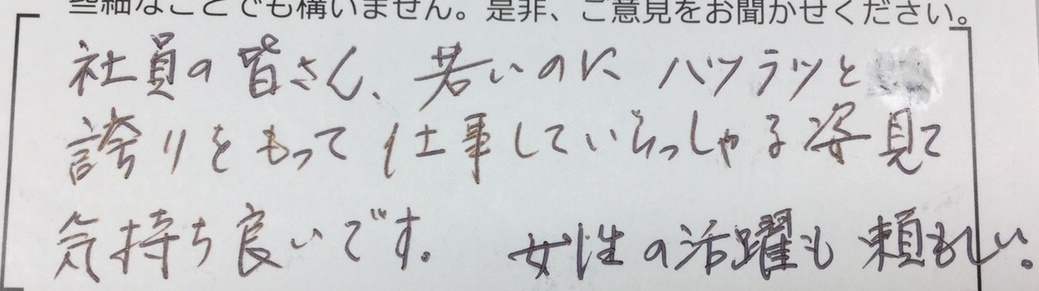 些細なことでも構いません。是非、ご意見をお聞かせください。
社員の皆さん、若いのに ハツラツと
誇りをもって仕事していらっしゃる姿見て
気持ち良いです。 女性の活躍も頼もしい。